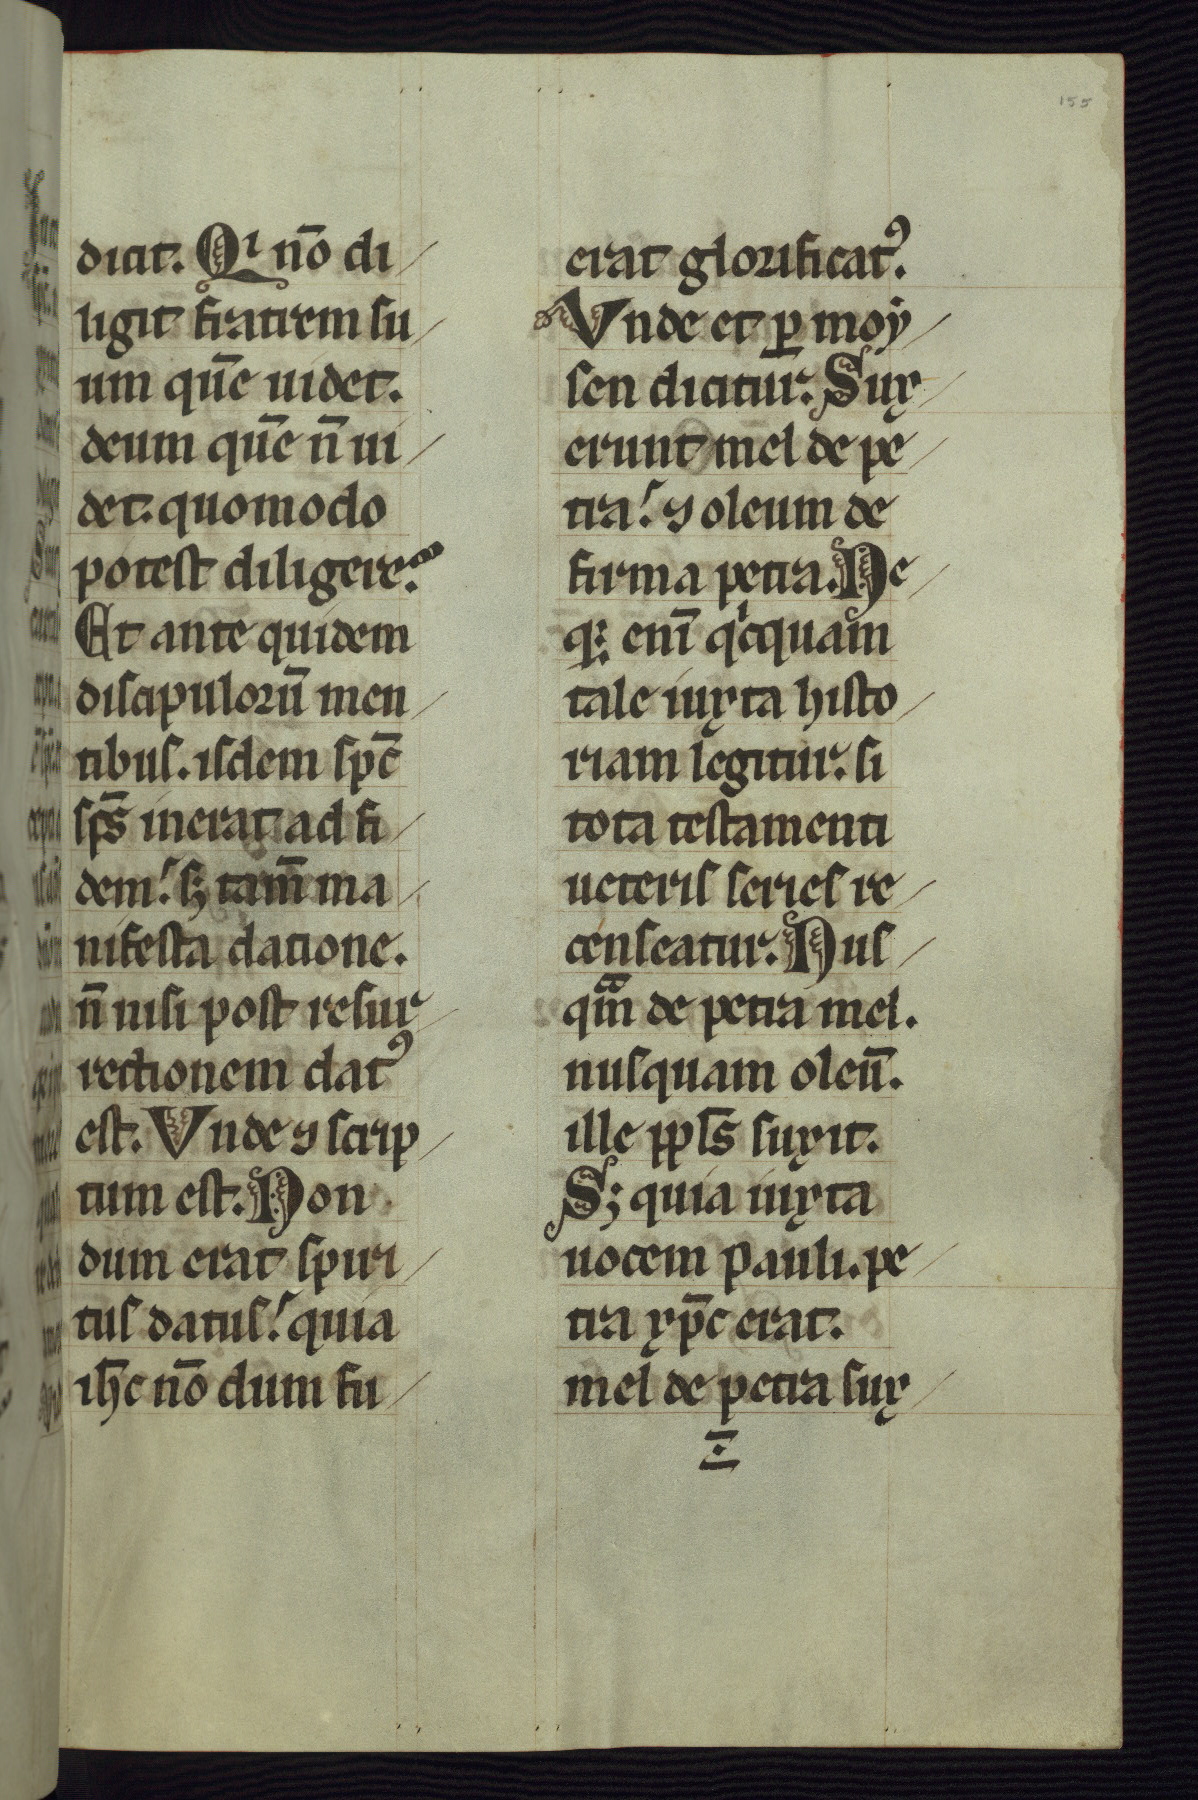 155
dicit. Qi nō di
ligit fratrem su
um quē uidet.
deum quē n̄ ui
det. quomodo
potest diligere?
Et ante quidem
discipulorū men
tibus. isdem sp̄c
sp̄s inerat ad fi
dem. sꝫ tam̄ ma
nifesta datione.
n̄ nisi post resur
rectionem datꝰ
est. Vnde ⁊ scrip
tum est. Non
dum erat spiri
tus datus. quia
ih̄c nō dum fu
erat glorificatꝰ.
Vnde et ꝑ moẏ
sen dicitur. Sux
erunt mel de pe
tra. ⁊ oleum de
firma petra. Ne
qꝫ enī qͥcquam
tale iuxta histo
riam legitur. si
tota testamenti
ueteris series re
censeatur. Nus
qm̄ de petra mel.
nusquam oleū.
ille ppłs̄ suxit.
Sꝫ quia iuxta
uocem pauli. pe
tra xp̄c erat.
mel de petra sux